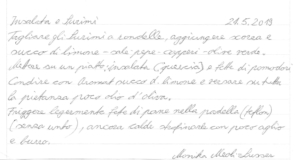 Insalata e Lucini 21.5.2013
Tagliare gli Lucini a rondelle, aggiungere scorza e
succo di limone - sale pepe - capperi - olive verdi.
Mettere su un piatto, insalata (quercia) e fete di pomodori
Condire con succo d'limone e versare su tutta
la pietanza poco olio d'oliva.
Friggere leggermente fete di pane nella padella (teflon)
(senza unto), ancora calde strofinarle con poco aglio
e burro.